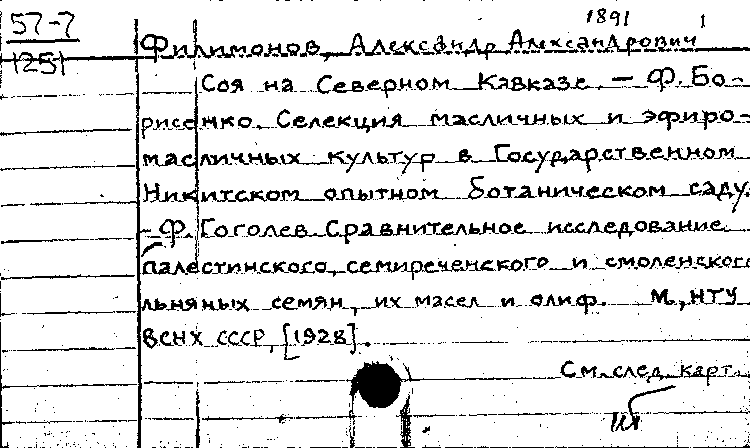 57-7
1251
1891 1
Филимонов, Александр Александрович
Соя на Северном Кавказе. — Ф. Бо-
рисенко. Селекция масличных и эфиро-
масличных культур в Государственном
Никитском опытном ботаническом саду.
- Ф. Гоголев. Сравнительное исследование
палестинского, семиреченского и смоленског
льняных семян, их масел и олиф. М., НТУ
ВСНХ СССР, [1928].
См. след. карт.